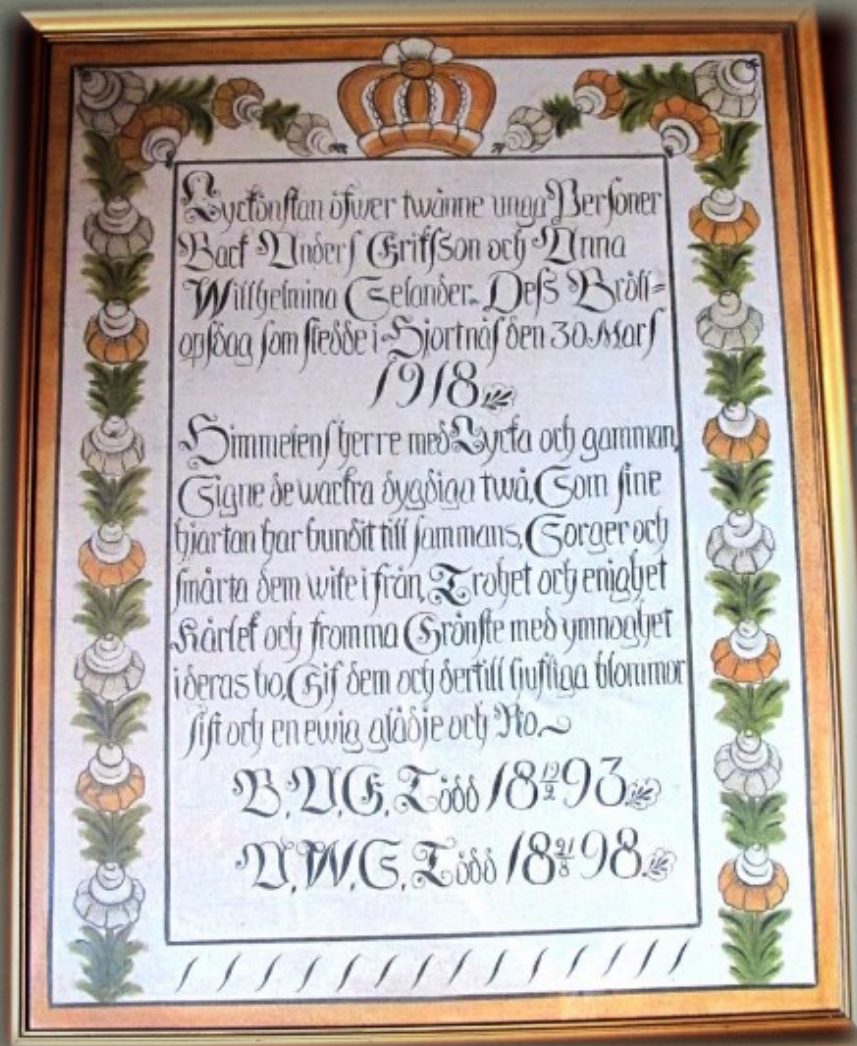 Lyckönskan öfwer twänne unga Personer
Back Anders Ersson och Anna
Willhelmina Selander. Dess Bröll=
opsdag som skedde i Hjortnäs den 30 Mars
1918
Himmelens herre med Lycka och gamman,
Signe de wackra dygdiga twå, Som sine
hjartan har bundit till sammans, Sorger och
smärta dem wike i från, Trohet och enighet
Kärlek och fromma Grönske med ymnoghet
i deras bo, Gif dem och dertill ljufliga blommor
sist och en ewig glädje och Ro.
B. A. E. Född 18 19/2 93
A. W. S. Född 18 21/8 98.